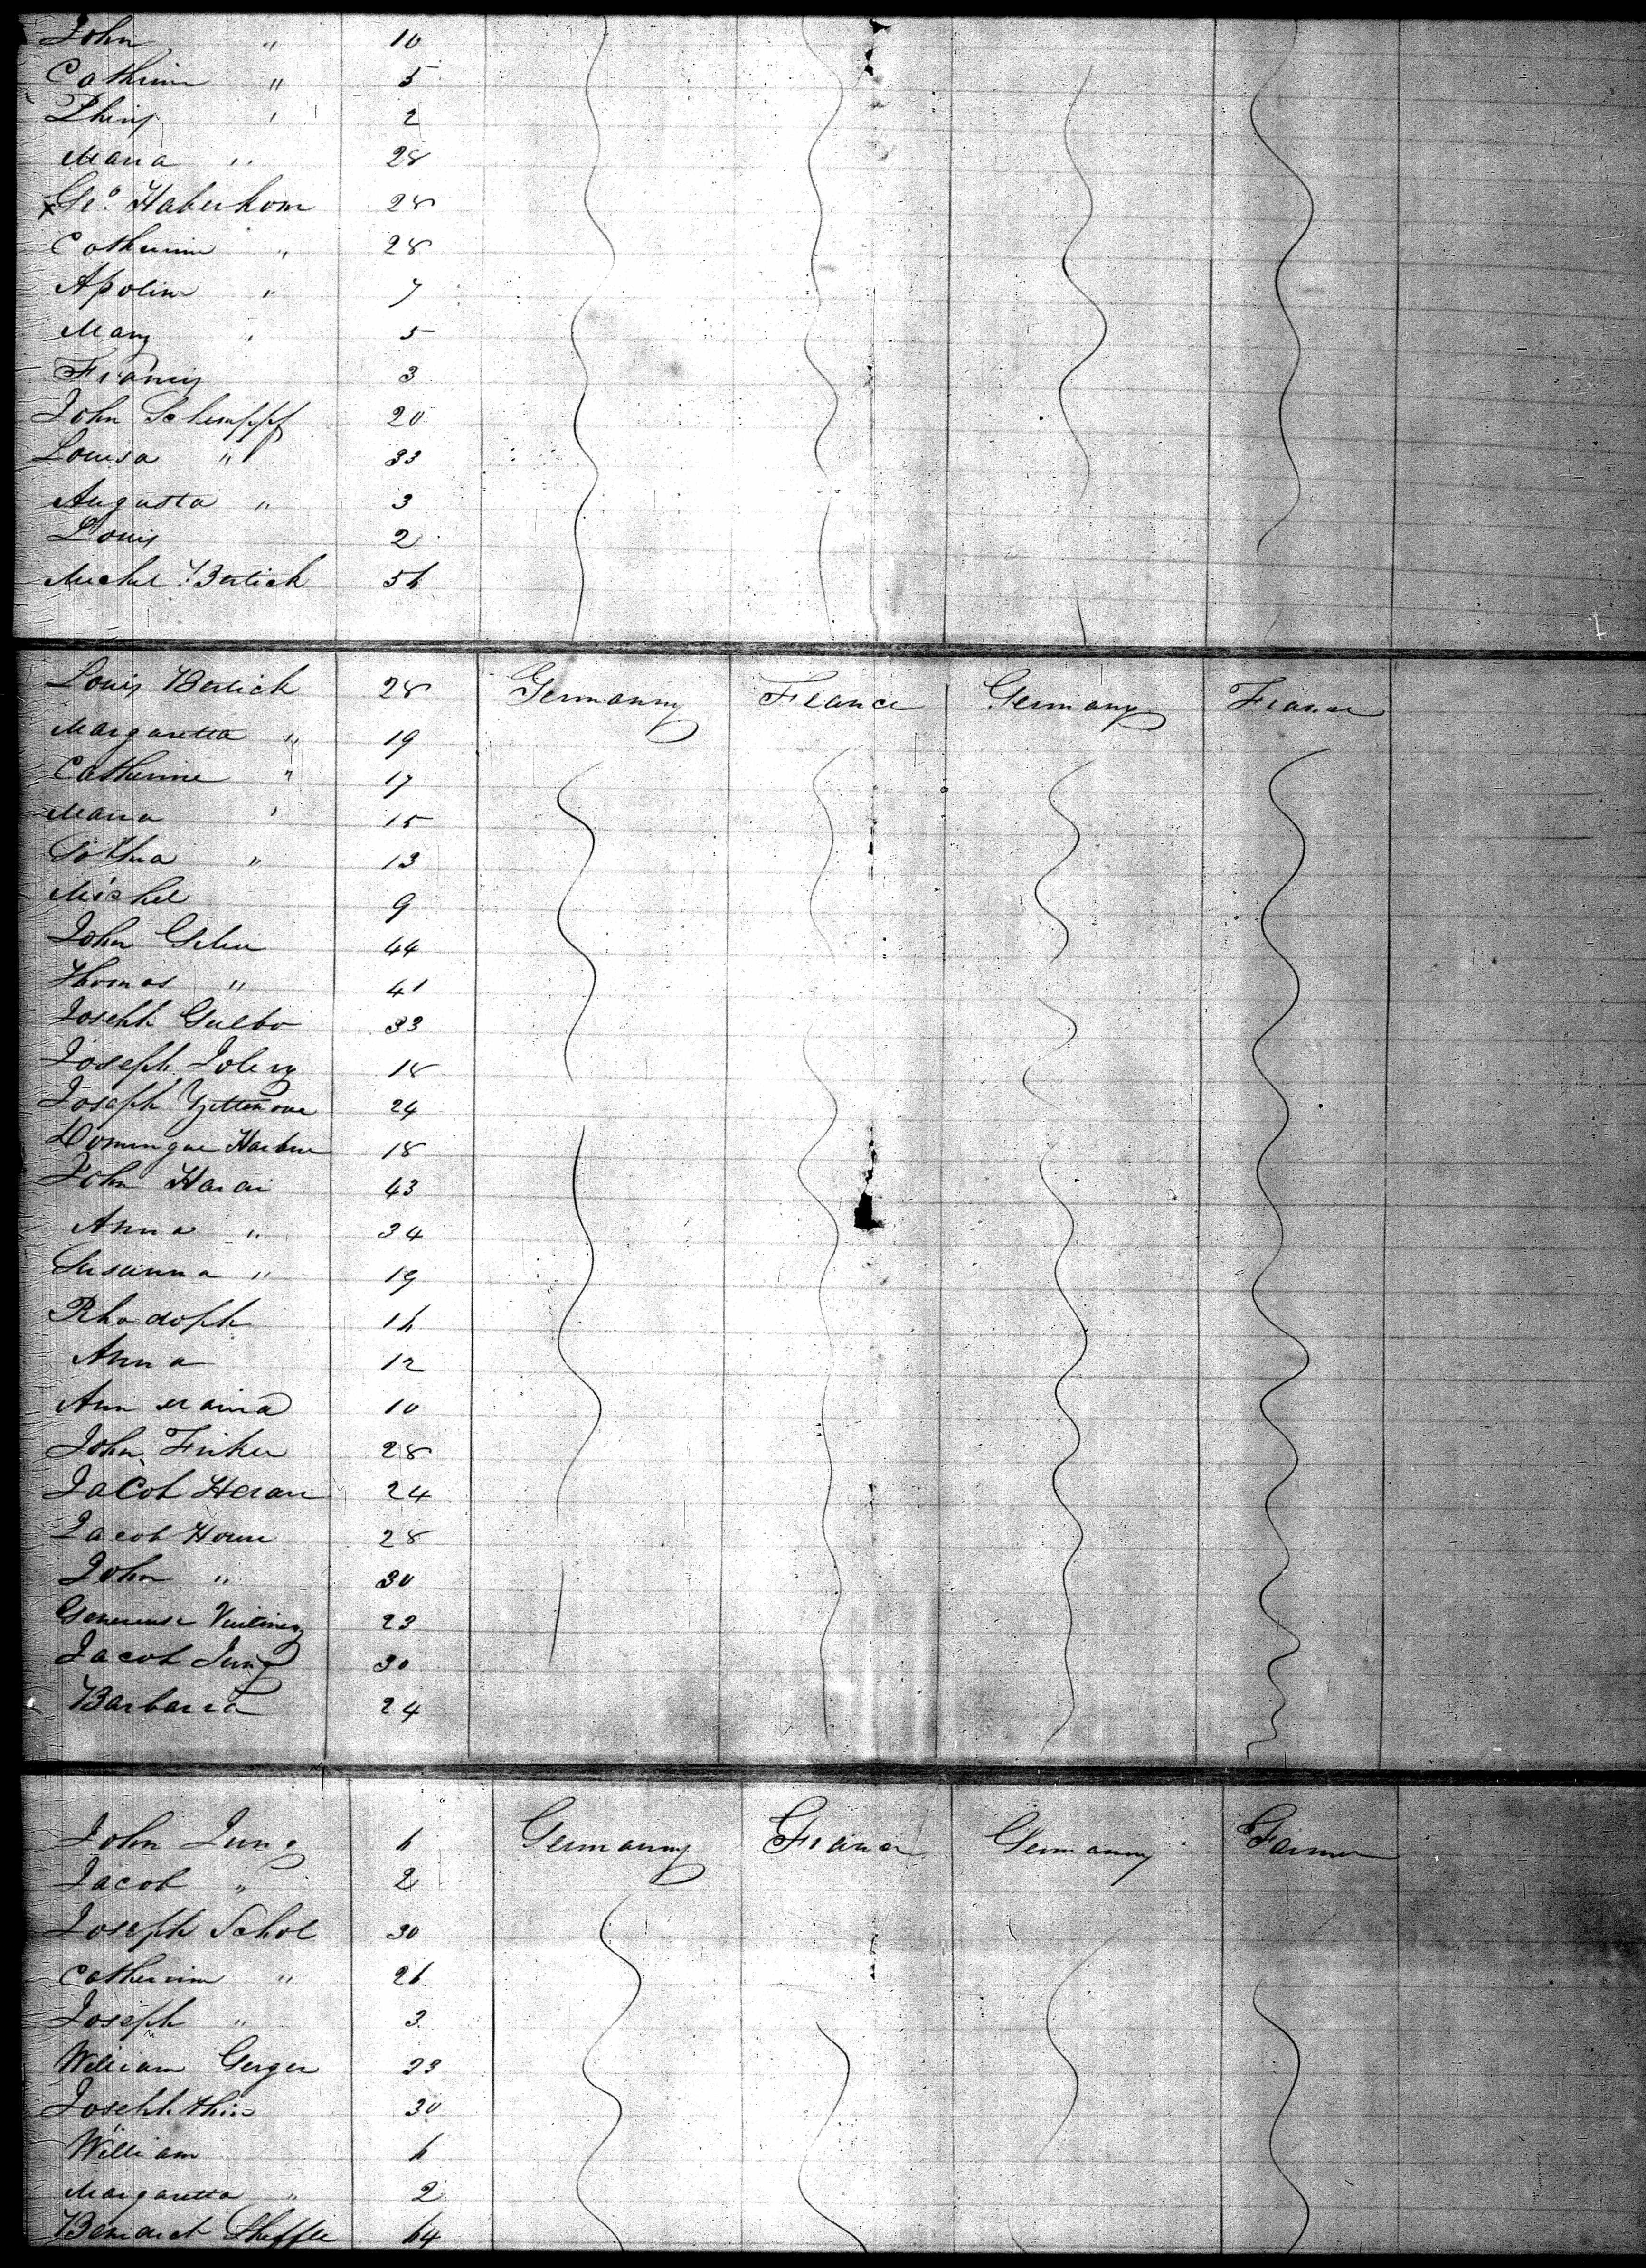 John " 10
Catherin " 5
2
Maria " 28
x Geo. Haberkorn 28
Catherin " 28
Apolin " 7
Mary " 5
Francis 3
John Schimpff 20
Louisa " 33
Augusta " 3
Louis 2
Michel Bertick 56
Louis Bertick 28 Germany France Germany France
Margaretta " 19
Catherine " 17
Maria " 15
" 13
Michel 9
John 44
Thomas " 41
Joseph 33
Joseph 18
Joseph 24
Domingue 18
John Harai 43
Anna " 34
Susanna " 19
Rhodolph 16
Anna 12
Ann Maria 10
John 28
Jacob Heran 24
Jacob 28
John " 30
23
Jacob Jung 30
Barbara 24
John Jung 6 Germany France Germany Farmer
Jacob " 2
Joseph Schol 30
Catherin " 26
Joseph " 3
William Gerger 23
Joseph 30
William 6
Margaretta " 2
64